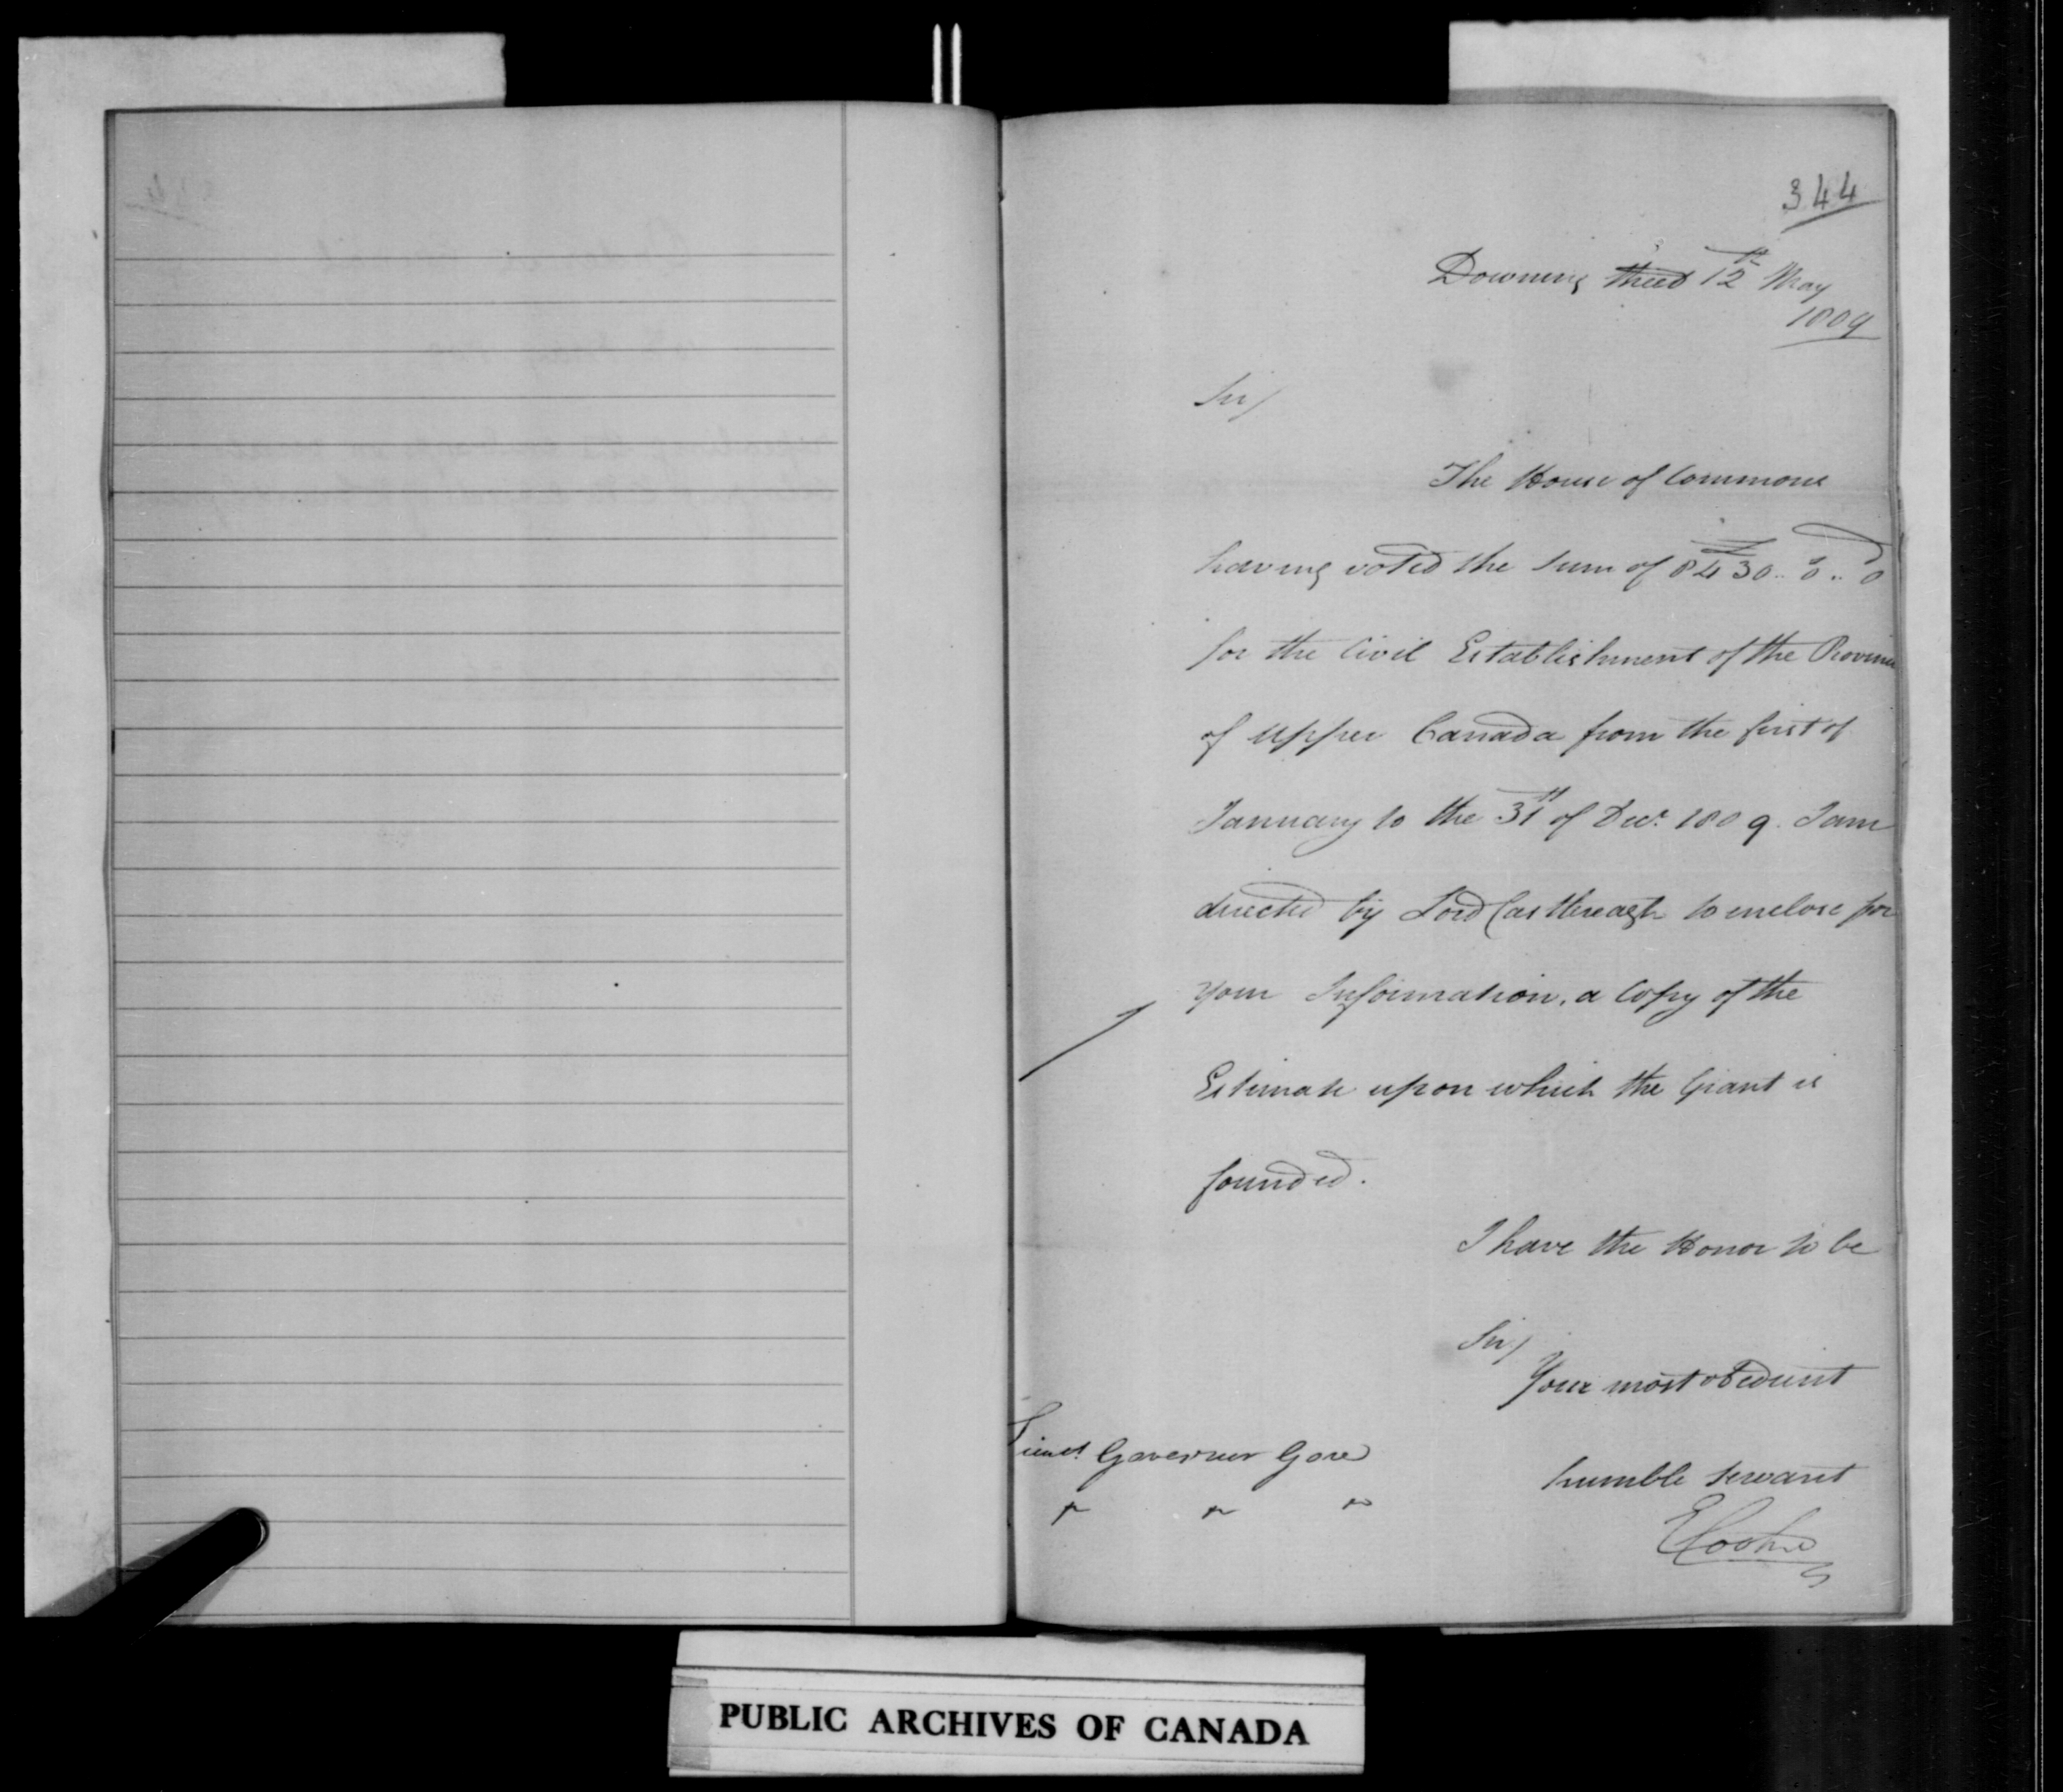 344
Downing Street 12th May
1809
Sir/
The House of Commons
having voted the Sum of £8430..0..0
for the Civil Establishment of the Province
of Upper Canada from the first of
January to the 31st of Decr. 1809. I am
directed by Lord Castlereagh to enclose for
your Information, a Copy of the
Estimate upon which the Grant is
founded.
I have the Honor to be
Sir/
Your most obedient
Lieut. Governor Gore
humble servant
" " "
E Cooke
PUBLIC ARCHIVES OF CANADA